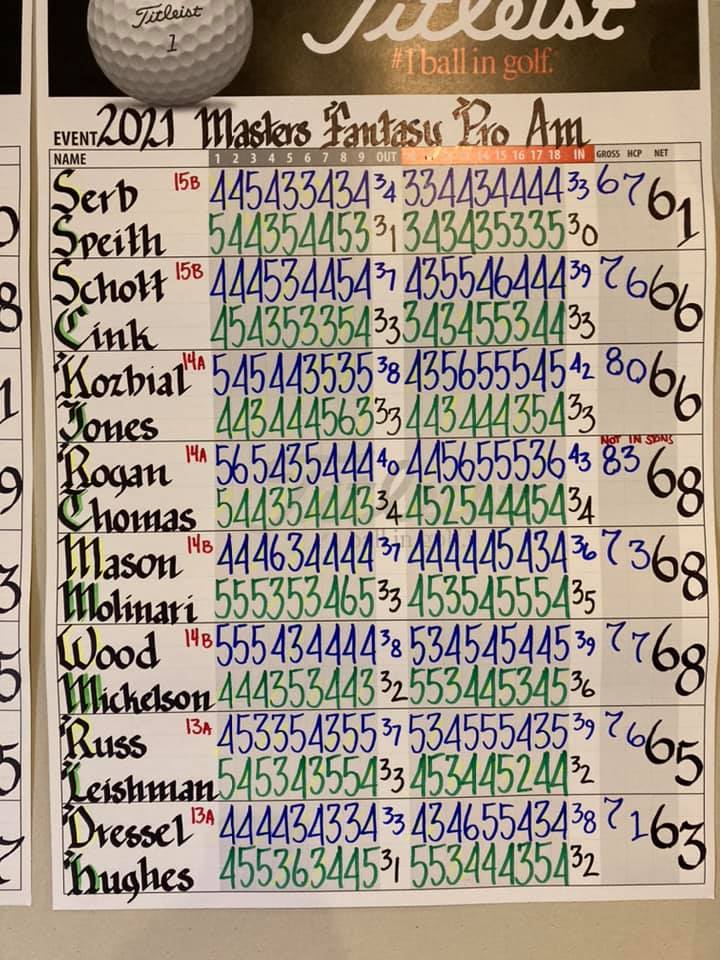 Titleist
1
Titleist
#1 ball in golf.
EVENT 2021 Masters Fantasy Pro Am
NAME 1 2 3 4 5 6 7 8 9 OUT 14 15 16 17 18 IN GROSS HCP NET
Serb 15B 445433434 34 334434444 33 67 61
Speith 544354453 31 343435335 30
Schott 15B 444534454 37 435546444 39 76 66
Cink 454353354 33 343455344 33
Kozbial 14A 545443535 38 435655545 42 80 66
Jones 443444563 33 443444354 33
NOT IN SKINS
Rogan 14A 565435444 40 445655536 43 83 68
Thomas 544354443 34 452544454 34
Mason 14B 444634444 37 444445434 36 73 68
Molinari 555353465 33 453545554 35
Wood 14B 555434444 38 534545445 39 77 68
Mickelson 444353443 32 553445345 36
Russ 13A 453354355 37 534555435 39 76 65
Leishman 545343554 33 453445244 32
Dressel 13A 444434334 33 434655434 38 71 63
Hughes 455363445 31 553444354 32